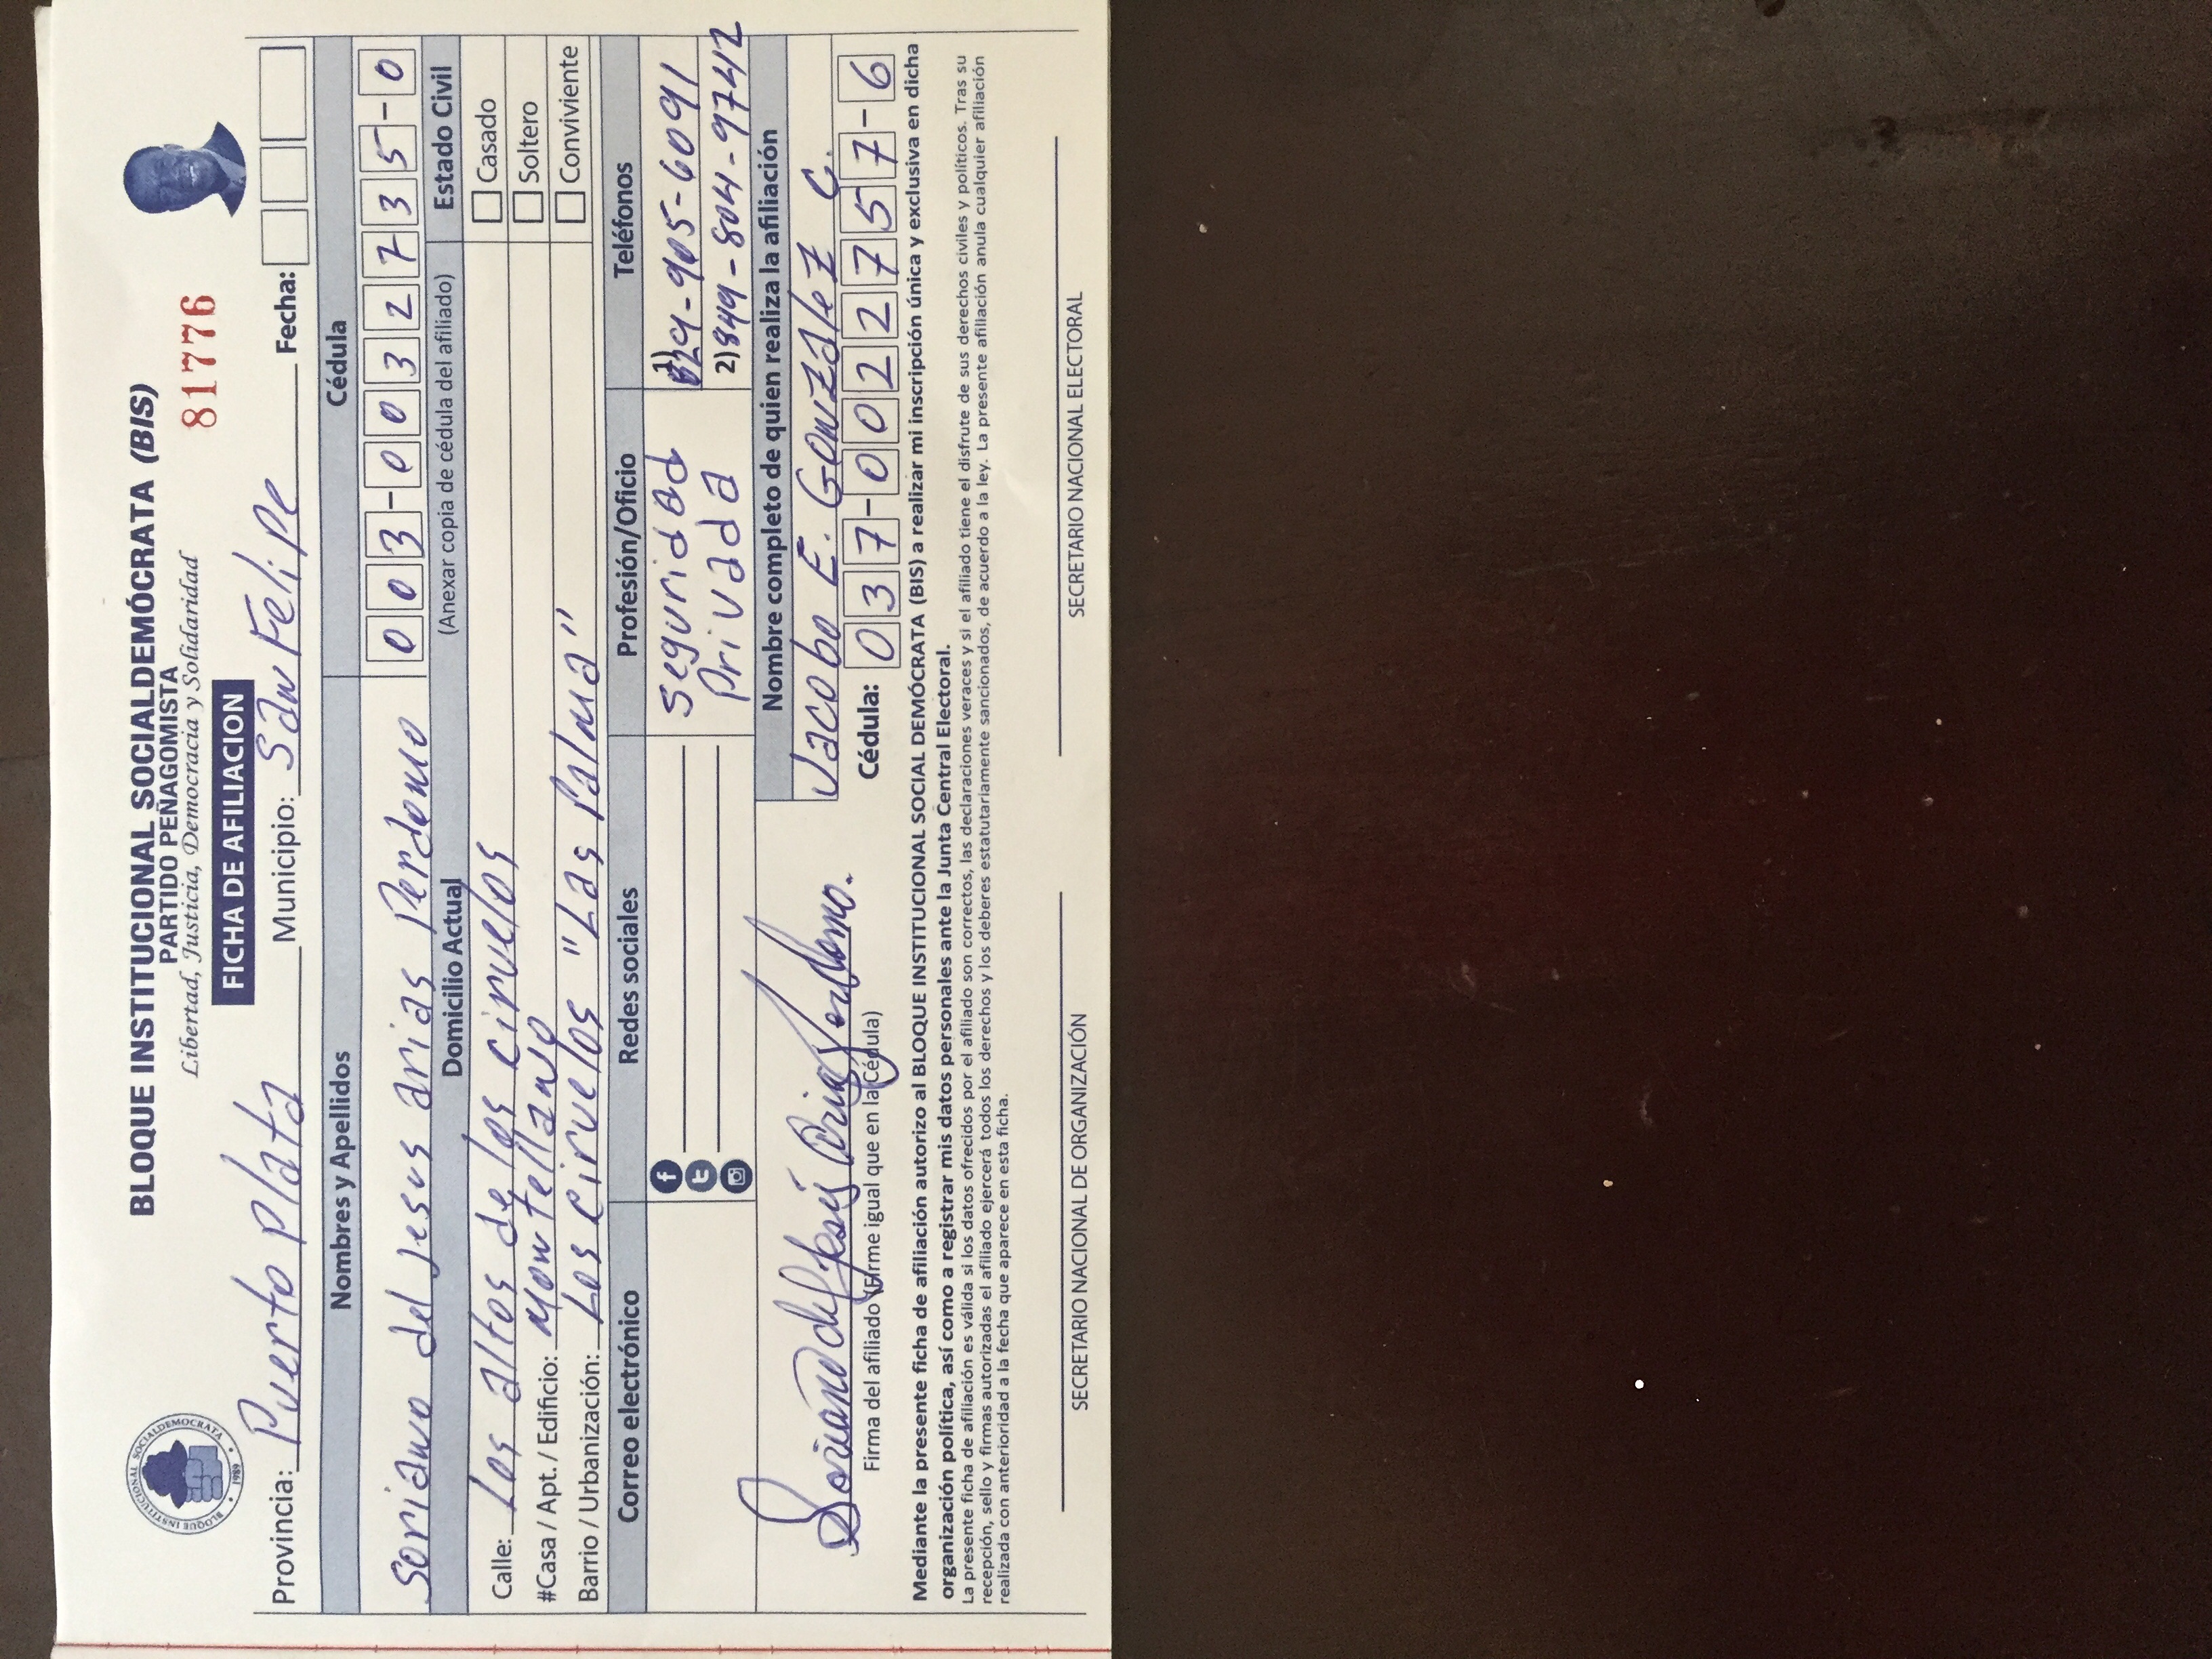 BLOQUE INSTITUCIONAL SOCIALDEMÓCRATA (BIS)
PARTIDO PEÑAGOMISTA
Libertad, Justicia, Democracia y Solidaridad
FICHA DE AFILIACION
81776
BLOQUE INSTITUCIONAL SOCIALDEMOCRATA • 1989 •
Provincia: Puerto Plata Municipio: San Felipe Fecha:
Nombres y Apellidos Cédula
Soriano del Jesus arias Perdomo 003-0032735-0
Domicilio Actual (Anexar copia de cédula del afiliado) Estado Civil
Calle: Los altos de los ciruelos Casado
#Casa / Apt. / Edificio: Montellano Soltero
Barrio / Urbanización: Los Ciruelos "Las Palma" Conviviente
Correo electrónico Redes sociales Profesión/Oficio Teléfonos
Seguridad 1) 829-905-6091
Privada 2) 849-804-9742
Nombre completo de quien realiza la afiliación
Jacobo E. Gonzalez C.
Soriano del Jesús Arias Perdomo.
Firma del afiliado (Firme igual que en la Cédula)
Cédula: 037-0022757-6
Mediante la presente ficha de afiliación autorizo al BLOQUE INSTITUCIONAL SOCIAL DEMÓCRATA (BIS) a realizar mi inscripción única y exclusiva en dicha
organización política, así como a registrar mis datos personales ante la Junta Central Electoral.
La presente ficha de afiliación es válida si los datos ofrecidos por el afiliado son correctos, las declaraciones veraces y si el afiliado tiene el disfrute de sus derechos civiles y políticos. Tras su
recepción, sello y firmas autorizadas el afiliado ejercerá todos los derechos y los deberes estatutariamente sancionados, de acuerdo a la ley. La presente afiliación anula cualquier afiliación
realizada con anterioridad a la fecha que aparece en esta ficha.
SECRETARIO NACIONAL DE ORGANIZACIÓN SECRETARIO NACIONAL ELECTORAL